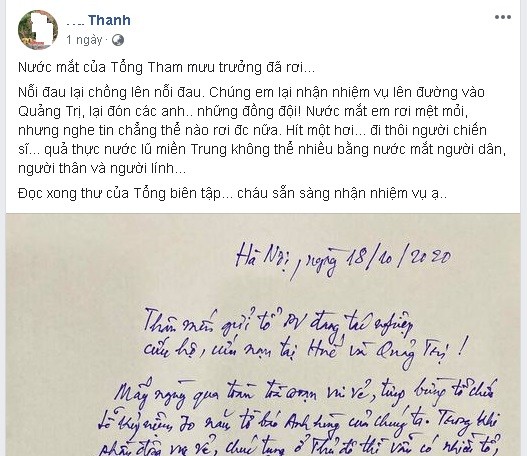 Thanh
1 ngày ·
Nước mắt của Tổng Tham mưu trưởng đã rơi...
Nỗi đau lại chồng lên nỗi đau. Chúng em lại nhận nhiệm vụ lên đường vào
Quảng Trị, lại đón các anh.. những đồng đội! Nước mắt em rơi mệt mỏi,
nhưng nghe tin chẳng thể nào rơi đc nữa. Hít một hơi... đi thôi người chiến
sĩ... quả thực nước lũ miền Trung không thể nhiều bằng nước mắt người dân,
người thân và người lính...
Đọc xong thư của Tổng biên tập... cháu sẵn sàng nhận nhiệm vụ ạ..
Hà Nội, ngày 18/10/2020
Thân mến gửi tổ PV đang tác nghiệp
cứu hộ, cứu nạn tại Huế và Quảng Trị!
Mấy ngày qua toàn tòa soạn vui vẻ, tưng bừng tổ chức
lễ kỷ niệm 70 năm tờ báo Anh hùng của chúng ta. Trong khi
phấn động vui vẻ, chúc tụng ở Thủ đô thì vẫn có nhiều tổ,